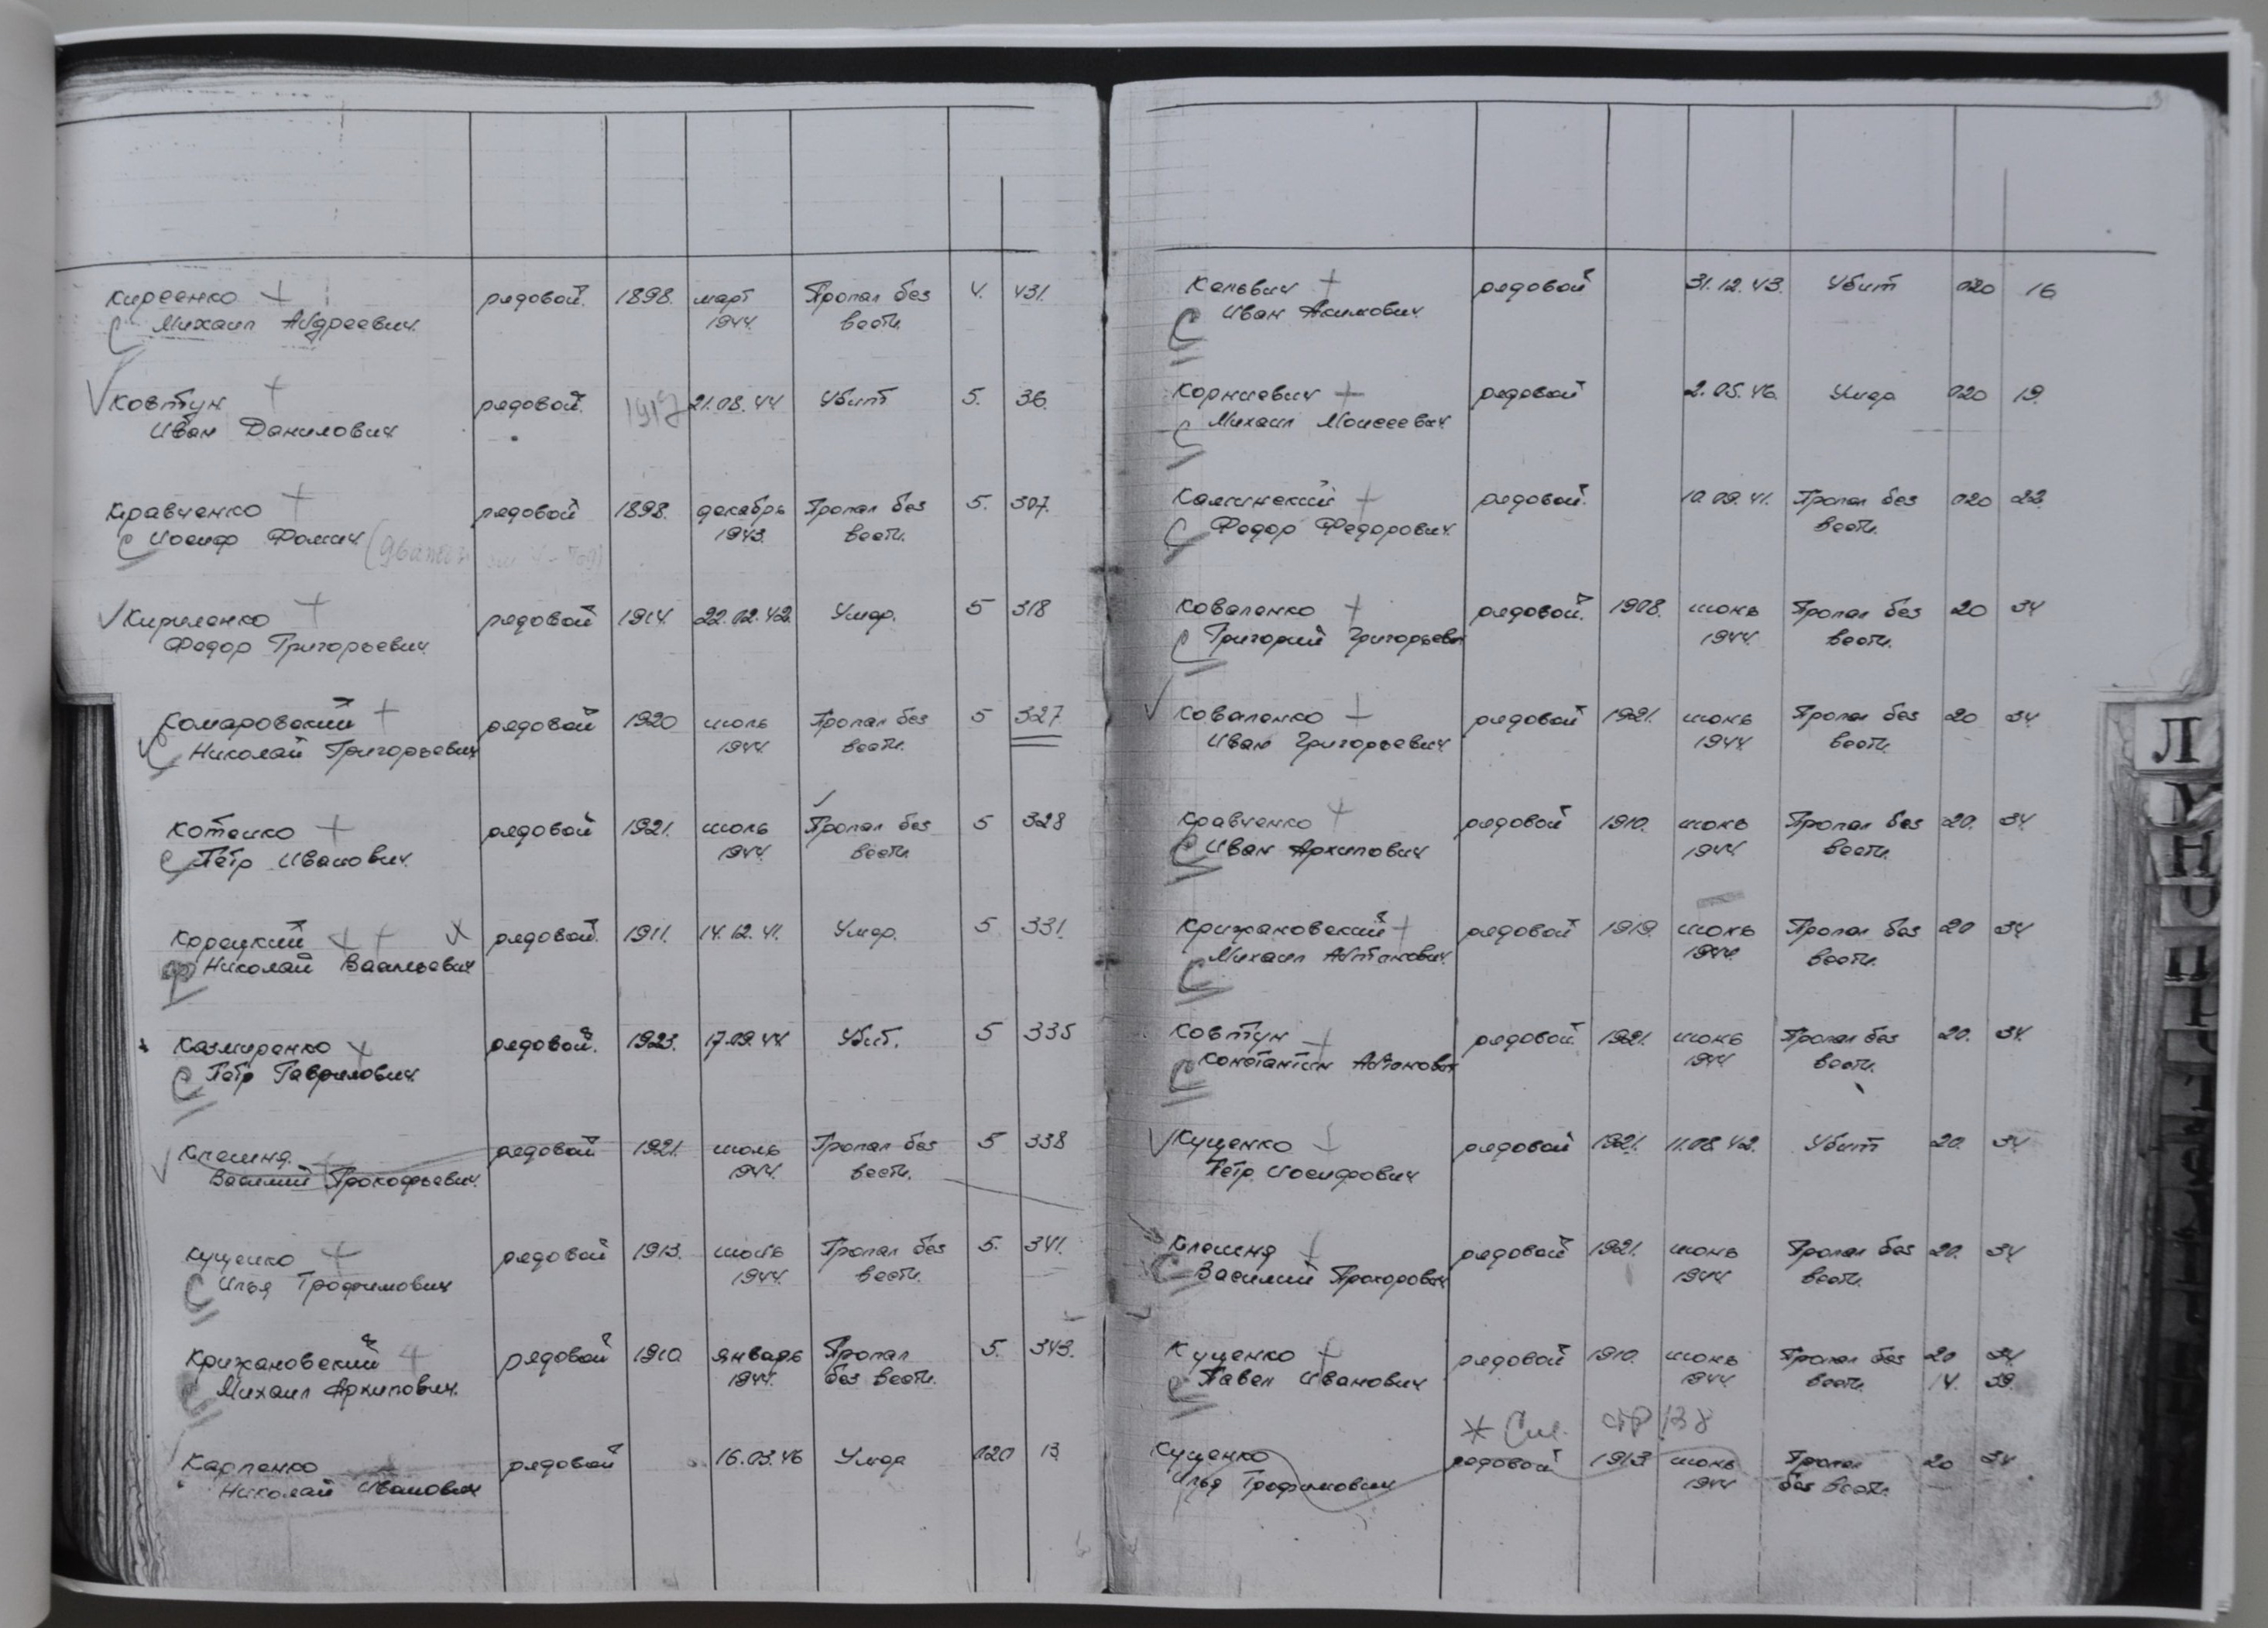 Киреенко + рядовой. 1898. март Пропал без 4. 431.
С Михаил Андреевич. 1944. вести.
√ Ковтун + рядовой. 1917 21.08.44 Убит 5. 36.
Иван Данилович
Кравченко + рядовой 1898. декабрь Пропал без 5. 307.
С Иосиф Фомич. 1943. вести.
√ Кириленко + рядовой 1914. 22.02.42. Умер. 5 318
Федор Григорьевич
Комаровский + рядовой 1920 июль Пропал без 5 327
С Николай Григорьевич 1944. вести.
Котенко + рядовой 1921. июль Пропал без 5 328
С Пётр Иванович. 1944. вести
Корецкий + + х рядовой. 1911. 14.12.41. Умер. 5. 331.
Ф Николай Васильевич
Казмиренко + рядовой. 1923. 17.09.44 Убит. 5 335
С Пётр Гаврилович.
√ Клешня рядовой 1921. июль Пропал без 5 338
Василий Прокофьевич. 1944. вести.
Кущенко + рядовой 1913. июль Пропал без 5. 341.
С Илья Трофимович 1944. вести.
Крижановский + рядовой 1910. январь Пропал 5. 343.
С Михаил Архипович. 1944. без вести.
Карпенко рядовой 16.03.46 Умер 020 13
Николай Иванович
Кельвич + рядовой 31.12.43. Убит 020 16
С Иван Акимович
Корниевич + рядовой 2.05.46. Умер 020 19.
С Михаил Моисеевич
Калинский + рядовой. 10.09.41. Пропал без 020 22.
С Федор Федорович. вести.
Коваленко + рядовой. 1908. июнь Пропал без 20 34
С Григорий Григорьевич 1944. вести.
√ Коваленко + рядовой 1921. июнь Пропал без 20 34
Иван Григорьевич 1944 вести.
Кравченко + рядовой 1910. июнь Пропал без 20. 34.
С Иван Архипович 1944 вести.
Крижановский + рядовой 1919. июнь Пропал без 20 34
С Михаил Антонович. 1944. вести.
Ковтун + рядовой. 1921. июнь Пропал без 20. 34.
С Константин Антонович 1944 вести.
√ Кущенко + рядовой 1921. 11.08.42. Убит 20. 34.
Пётр Иосифович
Клешня + рядовой 1921. июнь Пропал без 20. 34
С Василий Прохорович 1944 вести.
Куценко + рядовой 1910. июнь Пропал без 20 34
С Павел Иванович 1944 вести 14. 39.
* См. стр 138
Кущенко рядовой 1913 июнь Пропал 20 34
Илья Трофимович 1944 без вести.
Л
Н
П